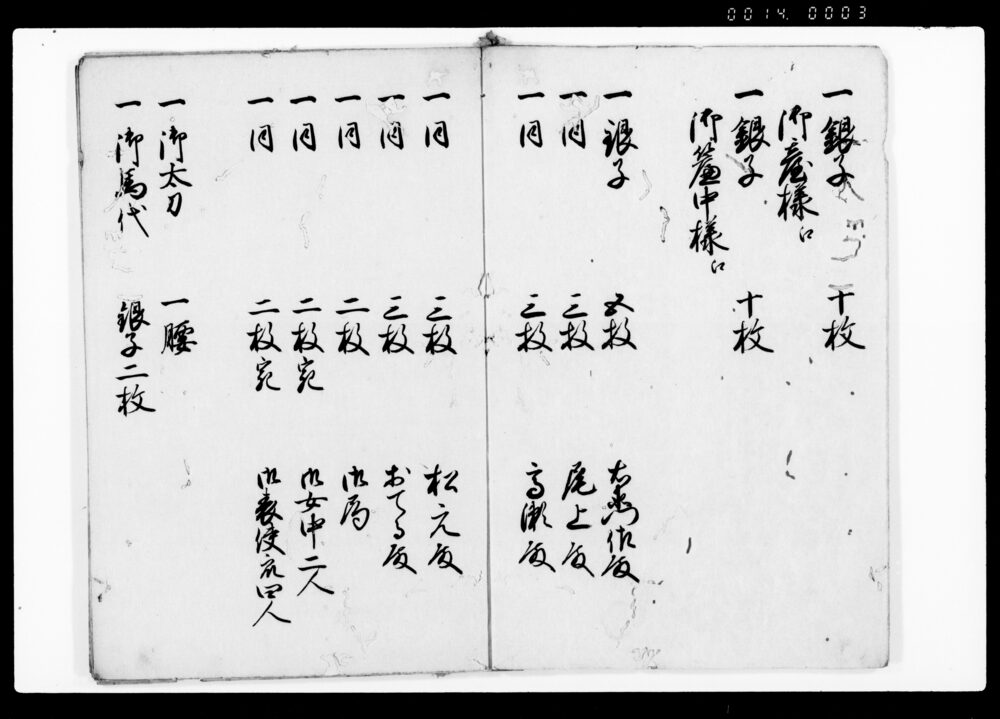 0014. 0003
一 銀子 十枚
御臺様江
一 銀子 十枚
御簾中様江
一 銀子 五枚 右衛門佐殿
一 同 三枚 尾上殿
一 同 三枚 高瀬殿
一 同 三枚 松元殿
一 同 三枚 おてる殿
一 同 二枚 御局
一 同 二枚宛 御女中二人
一 同 二枚宛 御表使衆四人
一 御太刀 一腰
一 御馬代 銀子二枚